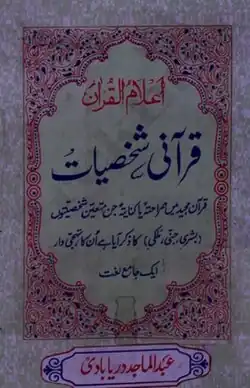 اعلام القرآن
قرآنی شخصیات
قرآن مجید میں صراحتہً یا کنایتہً جن متعین شخصیتوں
(بشری، جنی، ملکی) کا ذکر آیا ہے اُن کا تہجی وار
ایک جامع لغت
عبدالماجد دریابادی